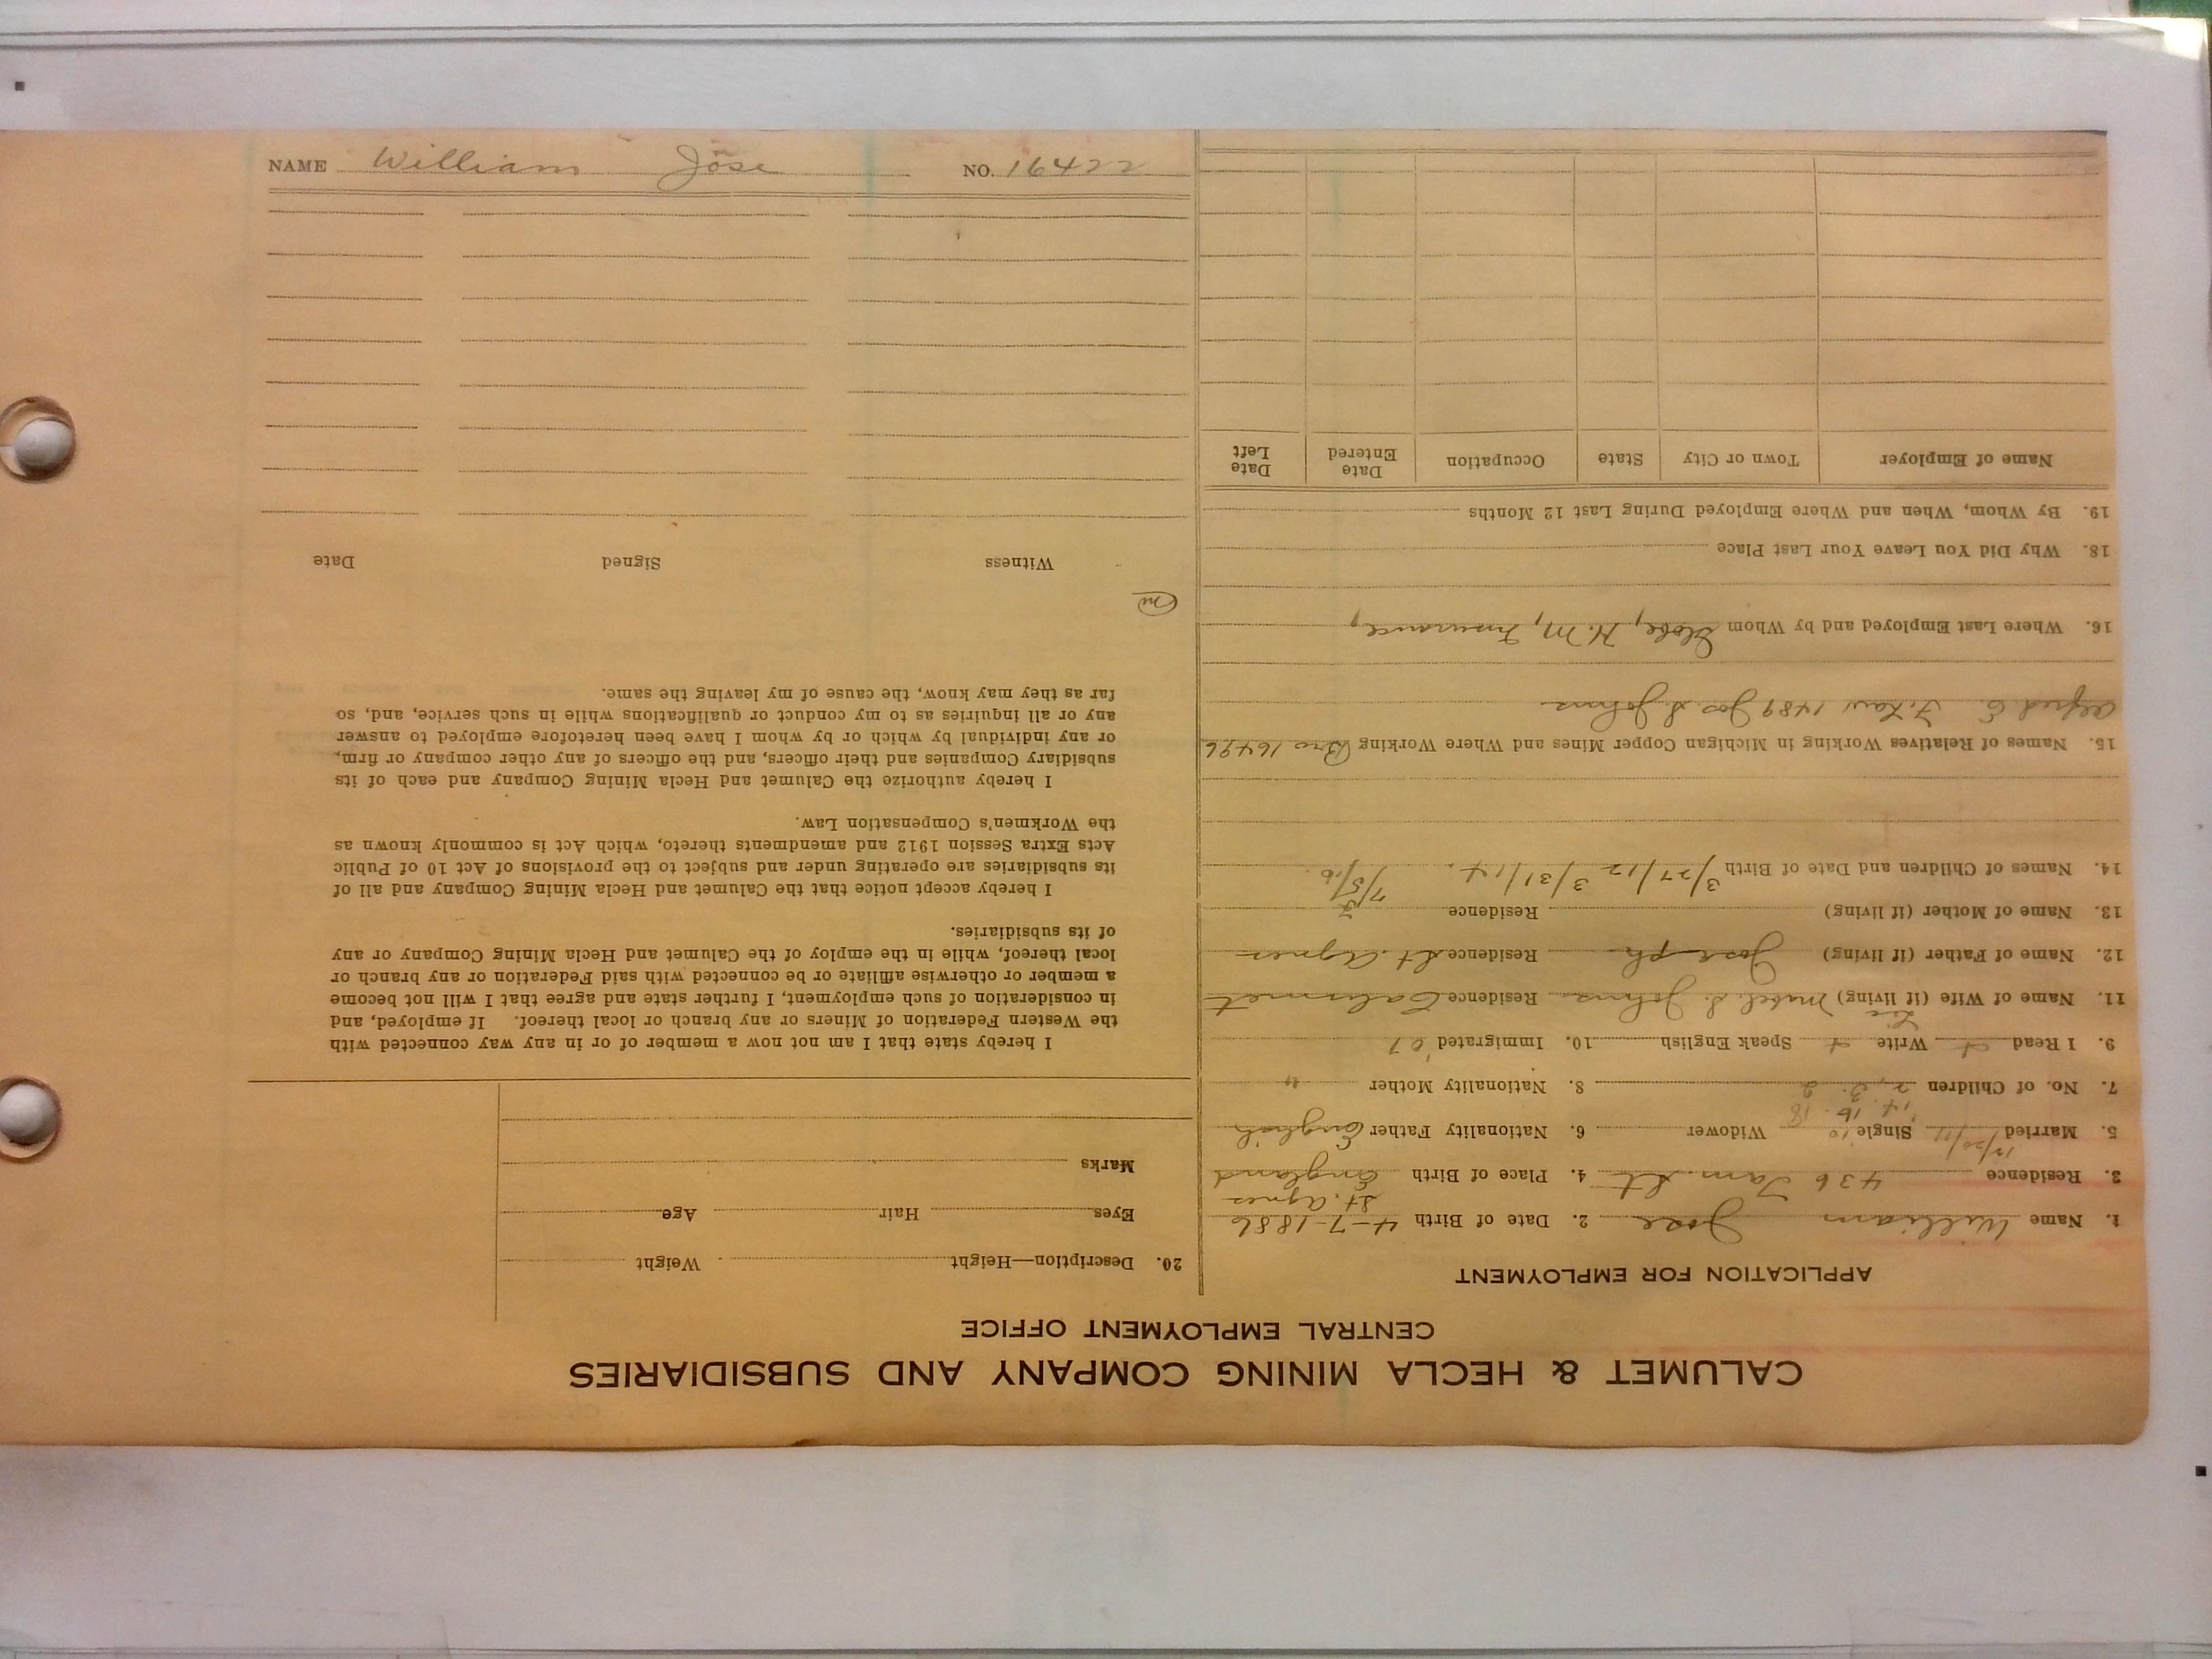 CALUMET & HECLA MINING COMPANY AND SUBSIDIARIES
CENTRAL EMPLOYMENT OFFICE
APPLICATION FOR EMPLOYMENT
1. Name William Jose 2. Date of Birth 4-7-1886
St. Agnes
3. Residence 436 Tam. St. 4. Place of Birth England
5. Married 12/20/11 Single Widower 6. Nationality Father English
14. 16. 18
7. No. of Children 2, 3. 2 8. Nationality Mother "
9. I Read Write Speak English 10. Immigrated '07
11. Name of Wife (if living) Mabel S. Johns Residence Calumet
12. Name of Father (if living) Joseph Residence St. Agnes
13. Name of Mother (if living) Residence
14. Names of Children and Date of Birth 3/27/12 3/31/14. 7/5/16.
15. Names of Relatives Working in Michigan Copper Mines and Where Working Bro 16496
Alfred E. F. Law 1489 Jos S. Johns
16. Where Last Employed and by Whom Globe, H. M, Insurance,
18. Why Did You Leave Your Last Place
19. By Whom, When and Where Employed During Last 12 Months
Name of Employer Town or City State Occupation Date Entered Date Left
20. Description—Height Weight
Eyes Hair Age
Marks
I hereby state that I am not now a member of or in any way connected with
the Western Federation of Miners or any branch or local thereof. If employed, and
in consideration of such employment, I further state and agree that I will not become
a member or otherwise affiliate or be connected with said Federation or any branch or
local thereof, while in the employ of the Calumet and Hecla Mining Company or any
of its subsidiaries.
I hereby accept notice that the Calumet and Hecla Mining Company and all of
its subsidiaries are operating under and subject to the provisions of Act 10 of Public
Acts Extra Session 1912 and amendments thereto, which Act is commonly known as
the Workmen's Compensation Law.
I hereby authorize the Calumet and Hecla Mining Company and each of its
subsidiary Companies and their officers, and the officers of any other company or firm,
or any individual by which or by whom I have been heretofore employed to answer
any or all inquiries as to my conduct or qualifications while in such service, and, so
far as they may know, the cause of my leaving the same.
Witness Signed Date
NAME William Jose NO. 16422